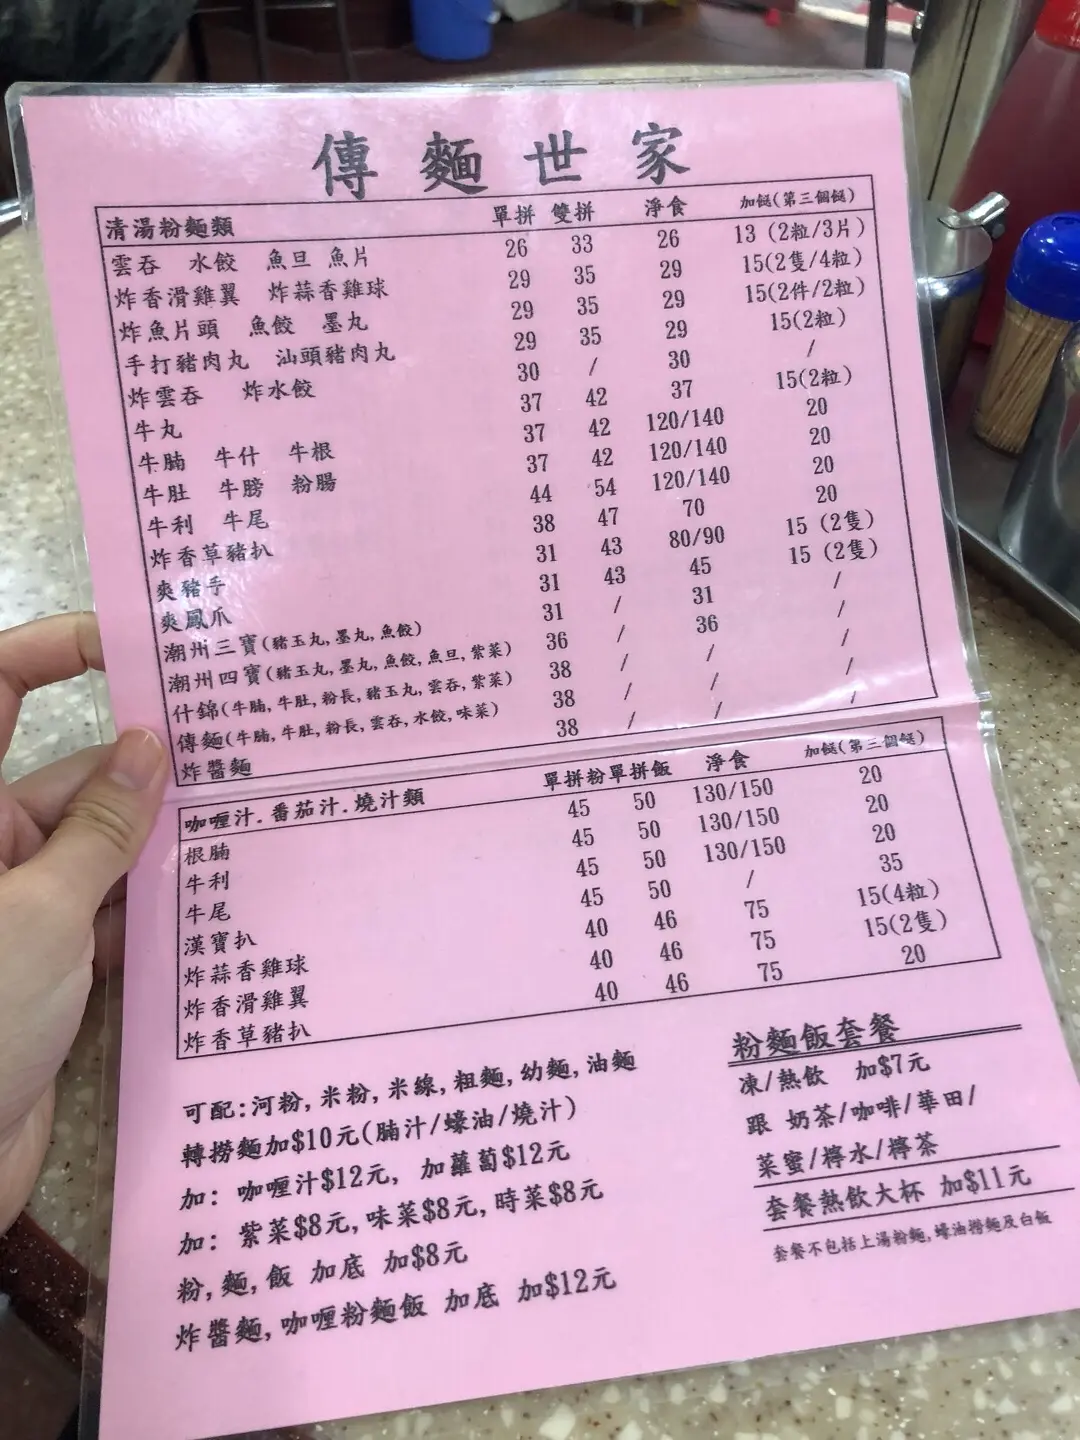 傳麵世家
清湯粉麵類 單拼 雙拼 淨食 加餸(第三個餸)
雲吞 水餃 魚旦 魚片 26 33 26 13 (2粒/3片)
炸香滑雞翼 炸蒜香雞球 29 35 29 15(2隻/4粒)
炸魚片頭 魚餃 墨丸 29 35 29 15(2件/2粒)
手打豬肉丸 汕頭豬肉丸 29 35 29 15(2粒)
炸雲吞 炸水餃 30 / 30 /
牛丸 37 42 37 15(2粒)
牛腩 牛什 牛根 37 42 120/140 20
牛肚 牛膀 粉腸 37 42 120/140 20
牛利 牛尾 44 54 120/140 20
炸香草豬扒 38 47 70 20
爽豬手 31 43 80/90 15 (2隻)
爽鳳爪 31 43 45 15 (2隻)
潮州三寶(豬玉丸,墨丸,魚餃) 31 / 31 /
潮州四寶(豬玉丸,墨丸,魚餃,魚旦,紫菜) 36 / 36 /
什錦(牛腩,牛肚,粉長,豬玉丸,雲吞,紫菜) 38 / / /
傳麵(牛腩,牛肚,粉長,雲吞,水餃,味菜) 38 / / /
炸醬麵 38 / / /
咖喱汁.番茄汁.燒汁類 單拼粉 單拼飯 淨食 加餸(第三個餸)
根腩 45 50 130/150 20
牛利 45 50 130/150 20
牛尾 45 50 130/150 20
漢寶扒 45 50 / 35
炸蒜香雞球 40 46 75 15(4粒)
炸香滑雞翼 40 46 75 15(2隻)
炸香草豬扒 40 46 75 20
可配:河粉,米粉,米線,粗麵,幼麵,油麵
轉撈麵加$10元(腩汁/蠔油/燒汁)
加: 咖喱汁$12元, 加蘿蔔$12元
加: 紫菜$8元,味菜$8元,時菜$8元
粉,麵,飯 加底 加$8元
炸醬麵,咖喱粉麵飯 加底 加$12元
粉麵飯套餐
凍/熱飲 加$7元
跟 奶茶/咖啡/華田/
菜蜜/檸水/檸茶
套餐熱飲大杯 加$11元
套餐不包括上湯粉麵,蠔油撈麵及白飯